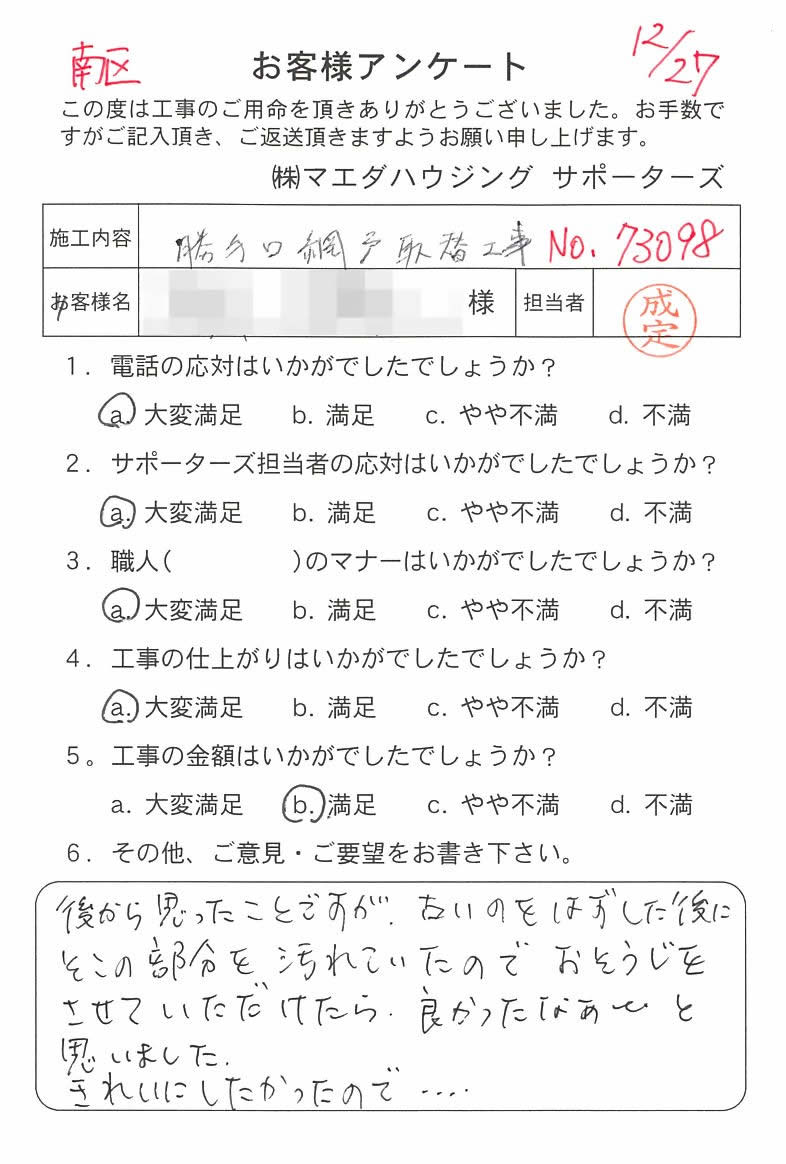 南区
お客様アンケート
12/27
この度は工事のご用命を頂きありがとうございました。お手数で
すがご記入頂き、ご返送頂きますようお願い申し上げます。
㈱マエダハウジング サポーターズ
施工内容 勝手口網戸取替工事 No. 73098
お客様名 様 担当者 成定
1. 電話の応対はいかがでしたでしょうか？
a. 大変満足 b. 満足 c. やや不満 d. 不満
2. サポーターズ担当者の応対はいかがでしたでしょうか？
a. 大変満足 b. 満足 c. やや不満 d. 不満
3. 職人( )のマナーはいかがでしたでしょうか？
a. 大変満足 b. 満足 c. やや不満 d. 不満
4. 工事の仕上がりはいかがでしたでしょうか？
a. 大変満足 b. 満足 c. やや不満 d. 不満
5。工事の金額はいかがでしたでしょうか？
a. 大変満足 b. 満足 c. やや不満 d. 不満
6. その他、ご意見・ご要望をお書き下さい。
後から思ったことですが、古いのをはずした後に
そこの部分を汚れていたのでおそうじを
させていただけたら、良かったなぁ〜と
思いました。
きれいにしたかったので....